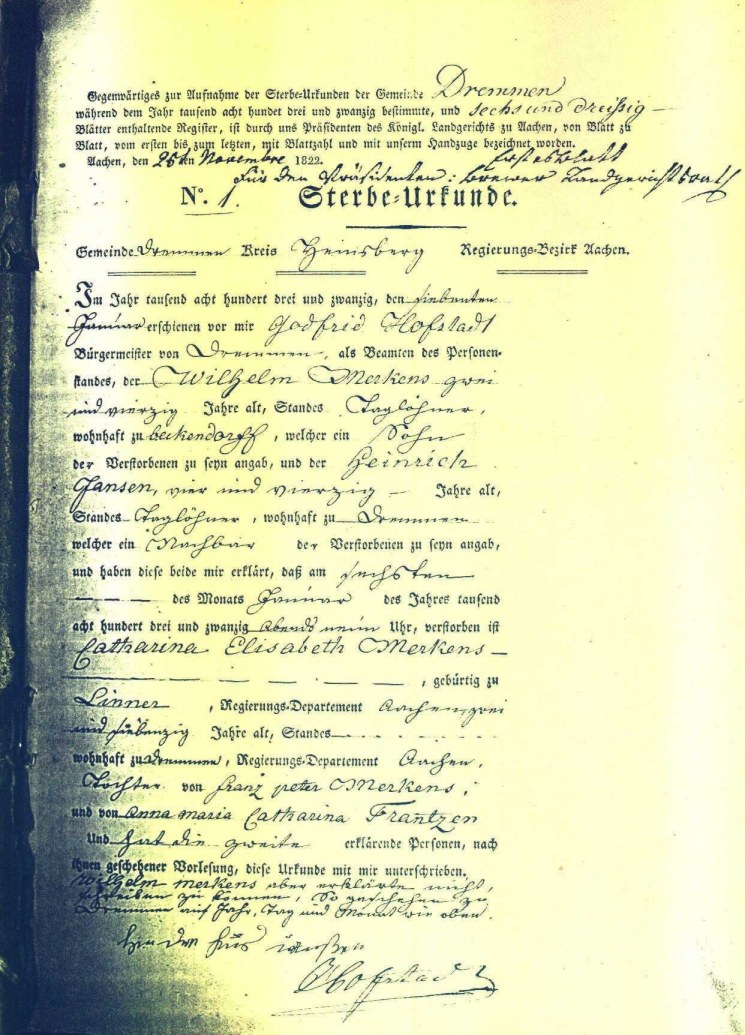 Gegenwärtiges zur Aufnahme der Sterbe-Urkunden der Gemeinde Dremmen
während dem Jahr tausend acht hundet drei und zwanzig bestimmte, und sechs und dreißig —
Blätter enthaltende Register, ist durch uns Präsidenten des Königl. Landgerichts zu Aachen, von Blatt zu
Blatt, vom ersten bis zum letzten, mit Blattzahl und mit unserm Handzuge bezeichnet worden.
Aachen, den 25ten Novembre 1822. Erstes Blatt
Für den Präsidenten: Brewer Landgerichtsrath
No. 1. Sterbe-Urkunde.
Gemeinde Dremmen Kreis Heinsberg Regierungs-Bezirk Aachen.
Im Jahr tausend acht hundert drei und zwanzig, den siebenten
Januar erschienen vor mir Godfrid Hofstadt
Bürgermeister von Dremmen, als Beamten des Personen-
standes, der Wilhelm Merkens zwei
und vierzig Jahre alt, Standes Taglöhner,
wohnhaft zu beckendorff, welcher ein Sohn
der Verstorbenen zu seyn angab, und der Heinrich
Jansen, vier und vierzig — Jahre alt,
Standes Taglöhner, wohnhaft zu Dremmen
welcher ein Nachbar der Verstorbenen zu seyn angab,
und haben diese beide mir erklärt, daß am sechsten
— — — des Monats Januar des Jahres tausend
acht hundert drei und zwanzig Abends neun Uhr, verstorben ist
Catharina Elisabeth Merkens —
— — — — — —, gebürtig zu
Linner, Regierungs-Departement Aachen, zwei
und siebenzig Jahre alt, Standes — — — —
wohnhaft zu Dremmen, Regierungs-Departement Aachen,
Tochter von franz peter Merkens,
und von Anna maria Catharina Frantzen
Und hat die zweite erklärende Personen, nach
ihnen geschehener Vorlesung, diese Urkunde mit mir unterschrieben.
Wilhelm merkens aber erklärte nicht,
schreiben zu können, So geschehen zu
Dremmen auf Jahr, Tag und Monat wie oben.
Hofstadt